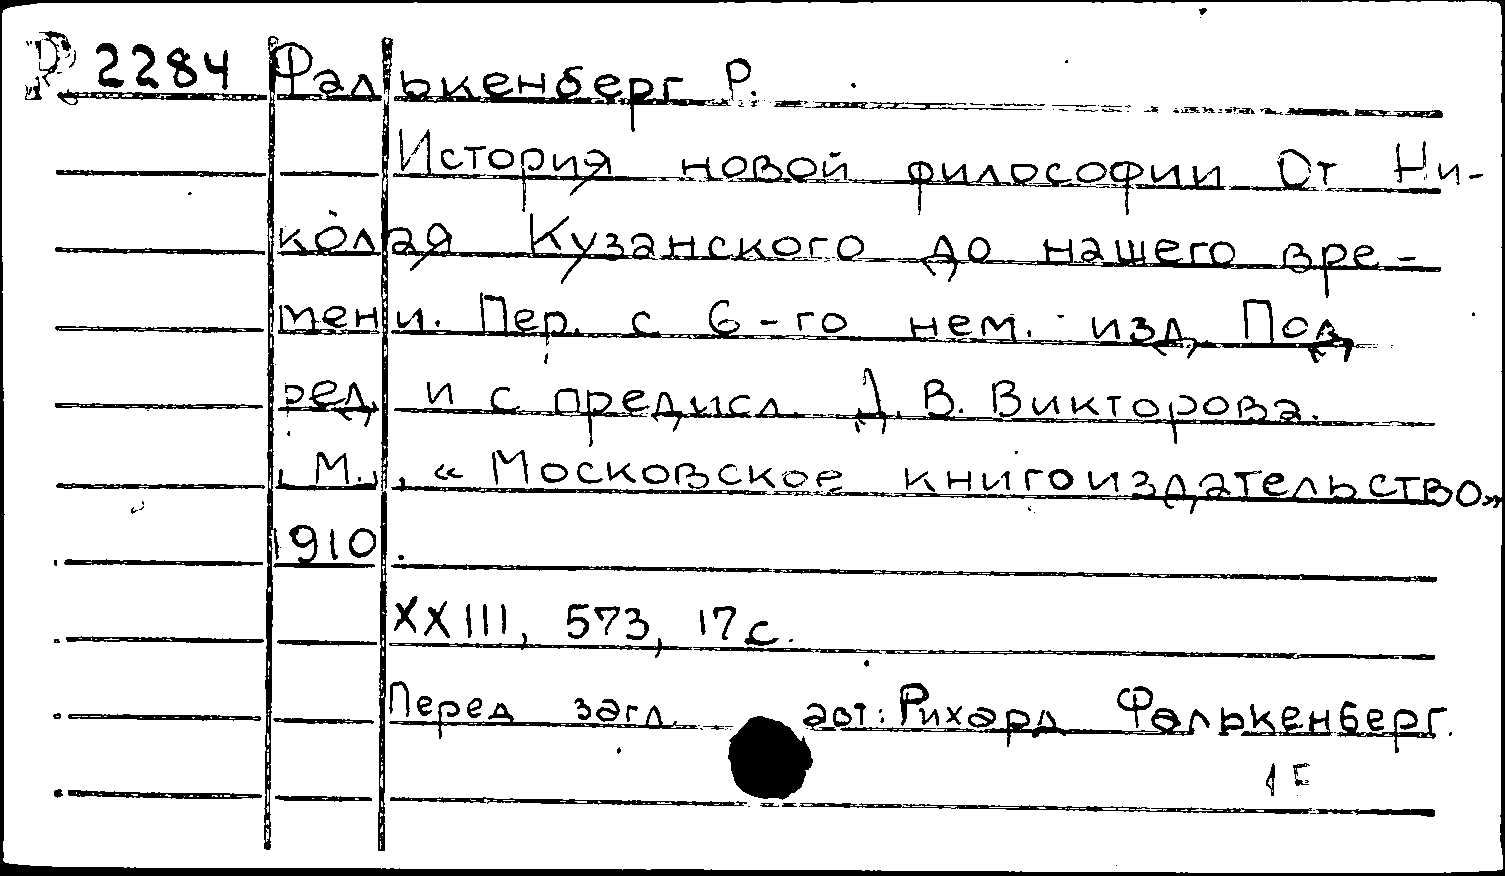 Р 2284 Фалькенберг Р.
История новой философии От Ни-
колая Кузанского до нашего вре-
мени. Пер. с 6-го нем. изд. Под
ред. и с предисл. Д. В. Викторова.
М., «Московское книгоиздательство»
1910.
XXIII, 573, 17 с.
Перед загл. авт: Рихард Фалькенберг.